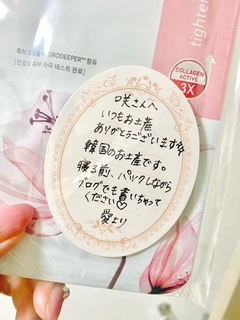 tighten
특허 조성물 HYDRODEEPER™ 함유
[민감성 피부 자극 테스트 완료]
COLLAGEN
ACTIVE
3X
咲さんへ
いつもお土産
ありがとうございます
韓国のお土産です。
寝る前、パックしながら
ブログでも書いちゃって
ください♡
愛より